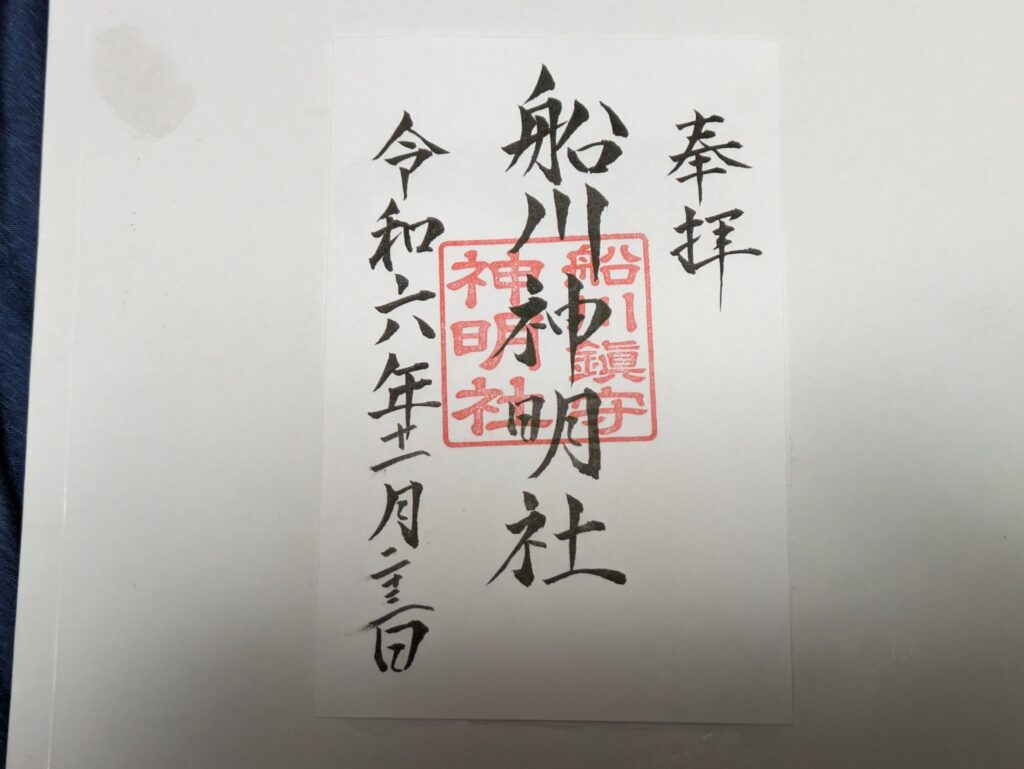 奉拝
船川神明社
令和六年十一月二十三日
船川鎮守
神明社